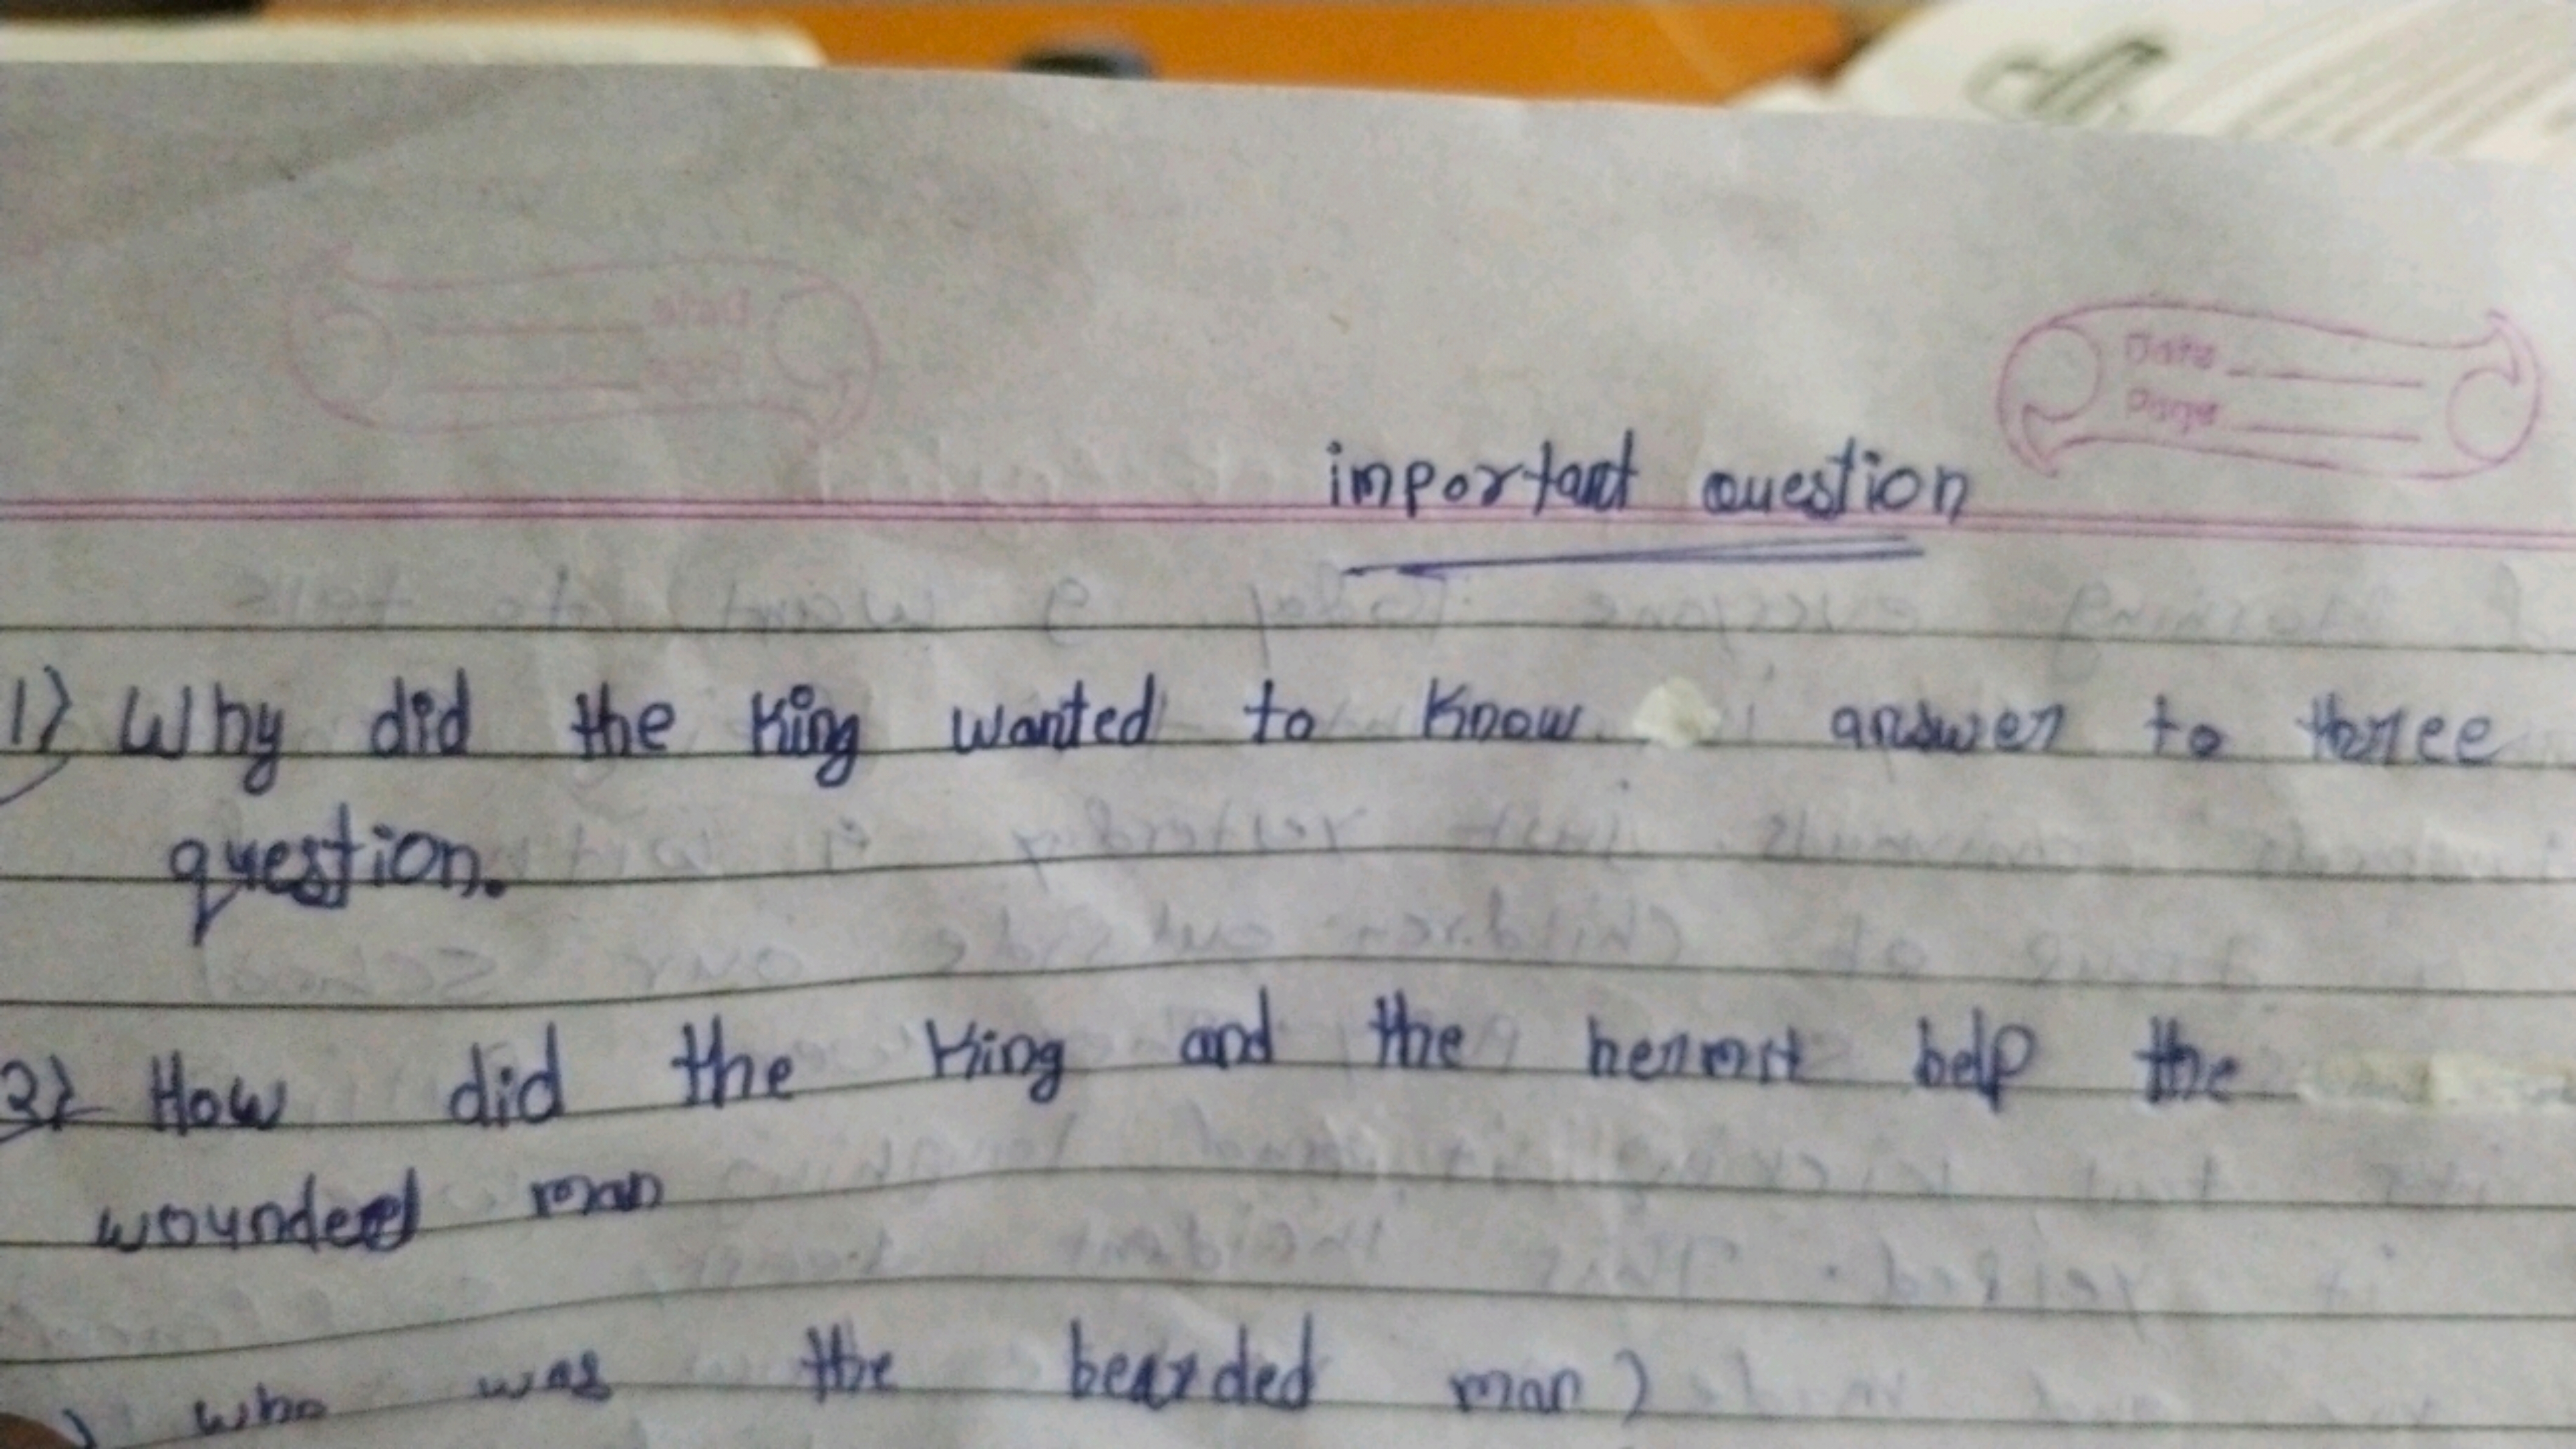 Date
Page
important question
1) Why did the King wanted to Know answer to three
question.
2) How did the King and the hermit help the
wounded man
who was the bearded man?